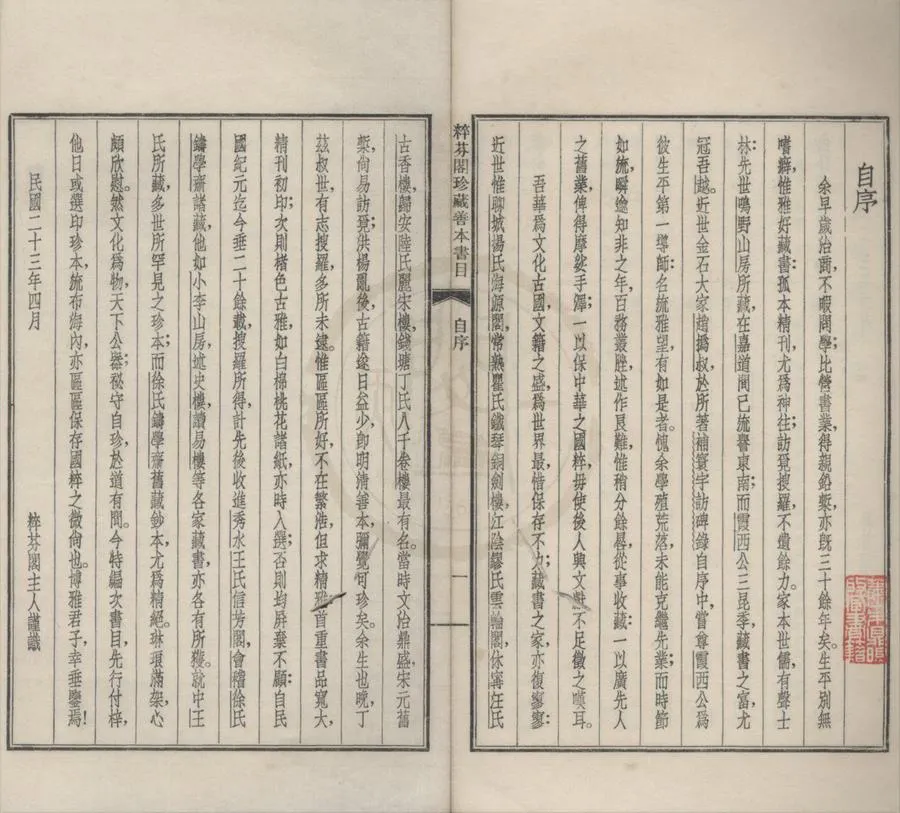 自序
余早歲治商，不暇問學；比營書業，得親鉛槧，亦既三十餘年矣。生平別無
嗜癖，惟雅好藏書：孤本精刊，尤爲神往；訪覓搜羅，不遺餘力。家本世儒，有聲士
林；先世鳴野山房所藏，在嘉道間已流譽東南；而霞西公三昆季藏書之富，尤
冠吾越。近世金石大家趙撝叔，於所著補寰宇訪碑錄自序中，嘗尊霞西公爲
彼生平第一導師：名流雅望，有如是者。愧余學殖荒落，未能克繼先業；而時節
如流，瞬逾知非之年，百務叢脞，述作艮難，惟稍分餘晷，從事收藏：一以廣先人
之舊業，俾得摩挲手澤；一以保中華之國粹，毋使後人興文獻不足徵之嘆耳。
吾華爲文化古國，文籍之盛，爲世界最，惜保存不力；藏書之家，亦復寥寥：
近世惟聊城楊氏海源閣，常熟瞿氏鐵琴銅劍樓，江陰繆氏雲輪閣，休寗汪氏
粹芬閣珍藏善本書目
自序
一
古香樓，歸安陸氏麗宋樓，錢塘丁氏八千卷樓最有名。當時文治鼎盛，宋元舊
槧，尙易訪覓；洪楊亂後，古籍遂日益少，卽明清善本，彌覺可珍矣。余生也晚，丁
茲叔世，有志搜羅，多所未逮。惟區區所好，不在繁浩，但求精雅，首重書品寬大，
精刊初印；次則楮色古雅，如白棉桃花諸紙，亦時入選；否則均屏棄不顧：自民
國紀元迄今垂二十餘載，搜羅所得，計先後收進秀水王氏信芳閣，會稽徐氏
鑄學齋諸藏，他如小李山房，述史樓，讀易樓等各家藏書，亦各有所獲。就中王
氏所藏，多世所罕見之珍本；而徐氏鑄學齋舊藏鈔本，尤爲精絕。琳琅滿架，心
頗欣慰。然文化爲物，天下公器；祕守自珍，於道有間。今特編次書目，先行付梓，
他日或選印珍本，流布海內，亦區區保存國粹之微尙也。博雅君子，幸垂鑒焉！
民國二十三年四月
粹芬閣主人謹識